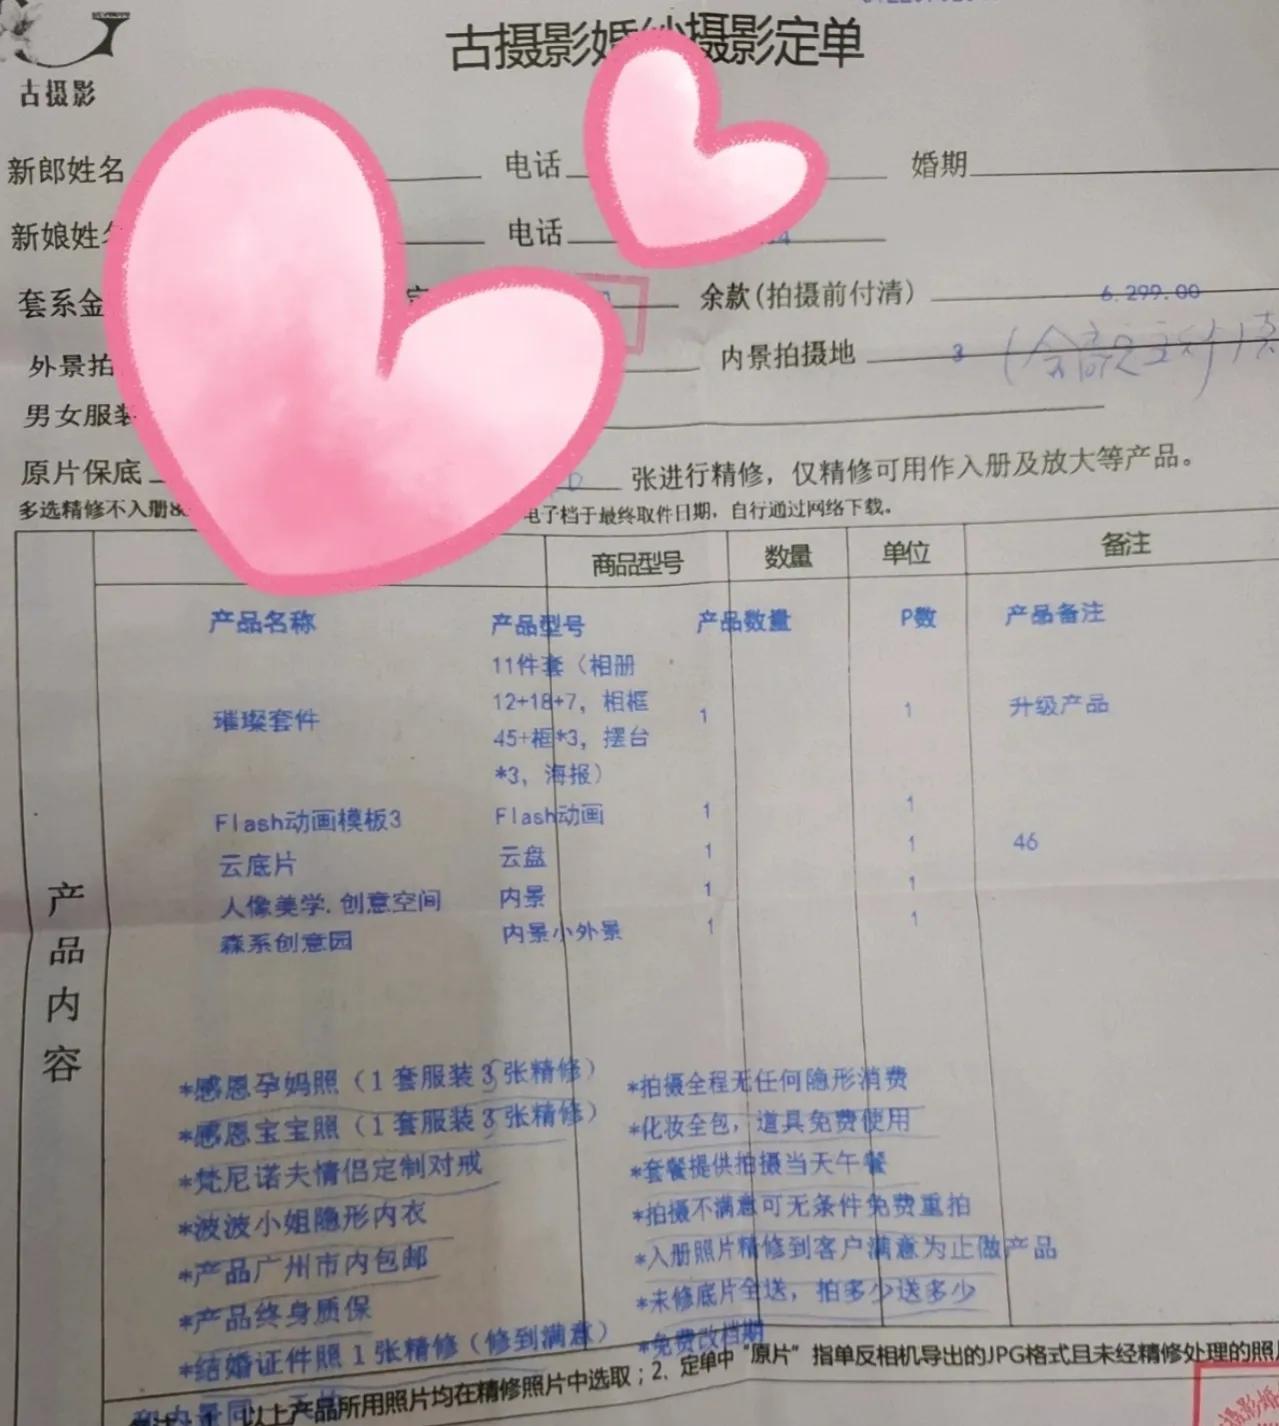 古摄影婚纱摄影定单
古摄影
新郎姓名 电话 婚期
新娘姓名 电话
套系金 余款(拍摄前付清) 6,299.00
外景拍 内景拍摄地 3
男女服装
原片保底 张进行精修，仅精修可用作入册及放大等产品。
多选精修不入册& 电子档于最终取件日期，自行通过网络下载。
商品型号 数量 单位 备注
产品内容
产品名称 产品型号 产品数量 P数 产品备注
璀璨套件 11件套（相册 12+18+7，相框 45+框*3，摆台 *3，海报） 1 1 升级产品
Flash动画模板3 Flash动画 1 1
云底片 云盘 1 1 46
人像美学.创意空间 内景 1 1
森系创意园 内景小外景 1 1
*感恩孕妈照（1套服装3张精修）
*感恩宝宝照（1套服装3张精修）
*梵尼诺夫情侣定制对戒
*波波小姐隐形内衣
*产品广州市内包邮
*产品终身质保
*结婚证件照1张精修（修到满意）
*拍摄全程无任何隐形消费
*化妆全包，道具免费使用
*套餐提供拍摄当天午餐
*拍摄不满意可无条件免费重拍
*入册照片精修到客户满意为止做产品
*未修底片全送，拍多少送多少
*免费改档期
以上产品所用照片均在精修照片中选取；2、定单中“原片”指单反相机导出的JPG格式且未经精修处理的照